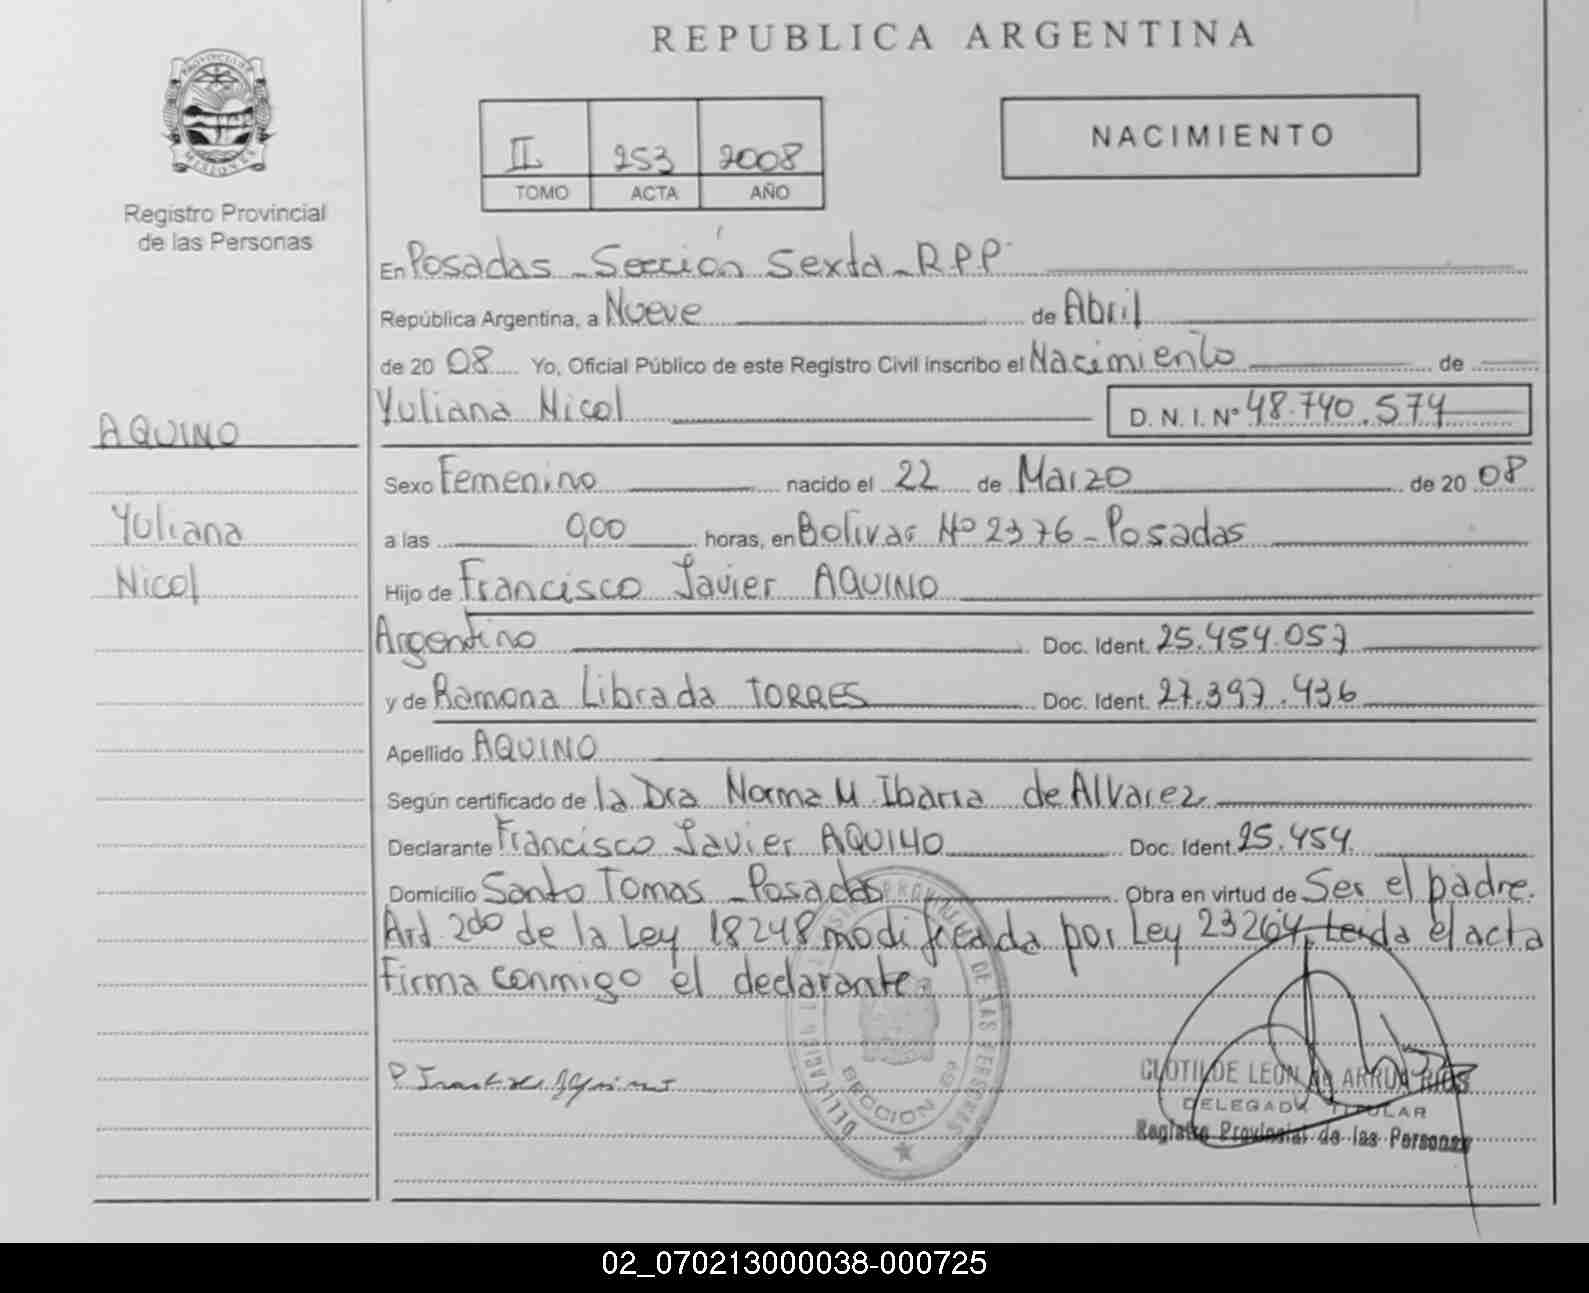 REPUBLICA ARGENTINA
PROVINCIA DE
MISIONES
Registro Provincial
de las Personas
II 253 2008
TOMO ACTA AÑO
NACIMIENTO
En Posadas - Sección Sexta - R.P.P.
República Argentina, a Nueve de Abril
de 20 08 Yo, Oficial Público de este Registro Civil inscribo el Nacimiento de
Yuliana Nicol D. N. I. N° 48.740.574
AQUINO
Yuliana
Nicol
Sexo Femenino nacido el 22 de Marzo de 20 08
a las 9,00 horas, en Bolivar Nº 2376 - Posadas
Hijo de Francisco Javier AQUINO
Argentino Doc. Ident. 25.454.057
y de Ramona Librada TORRES Doc. Ident. 27.397.436
Apellido AQUINO
Según certificado de la Dra Norma M. Ibarra de Alvarez
Declarante Francisco Javier AQUINO Doc. Ident. 25.454.
Domicilio Santo Tomas - Posadas Obra en virtud de Ser el padre.
Art. 2do de la Ley 18248 modificada por Ley 23264, Leida el acta
Firma conmigo el declarante.
DE LAS PERSONAS
SECCION 6º
CLOTILDE LEON de ARRUA RIOS
DELEGADA TITULAR
Registro Provincial de las Personas
02_070213000038-000725